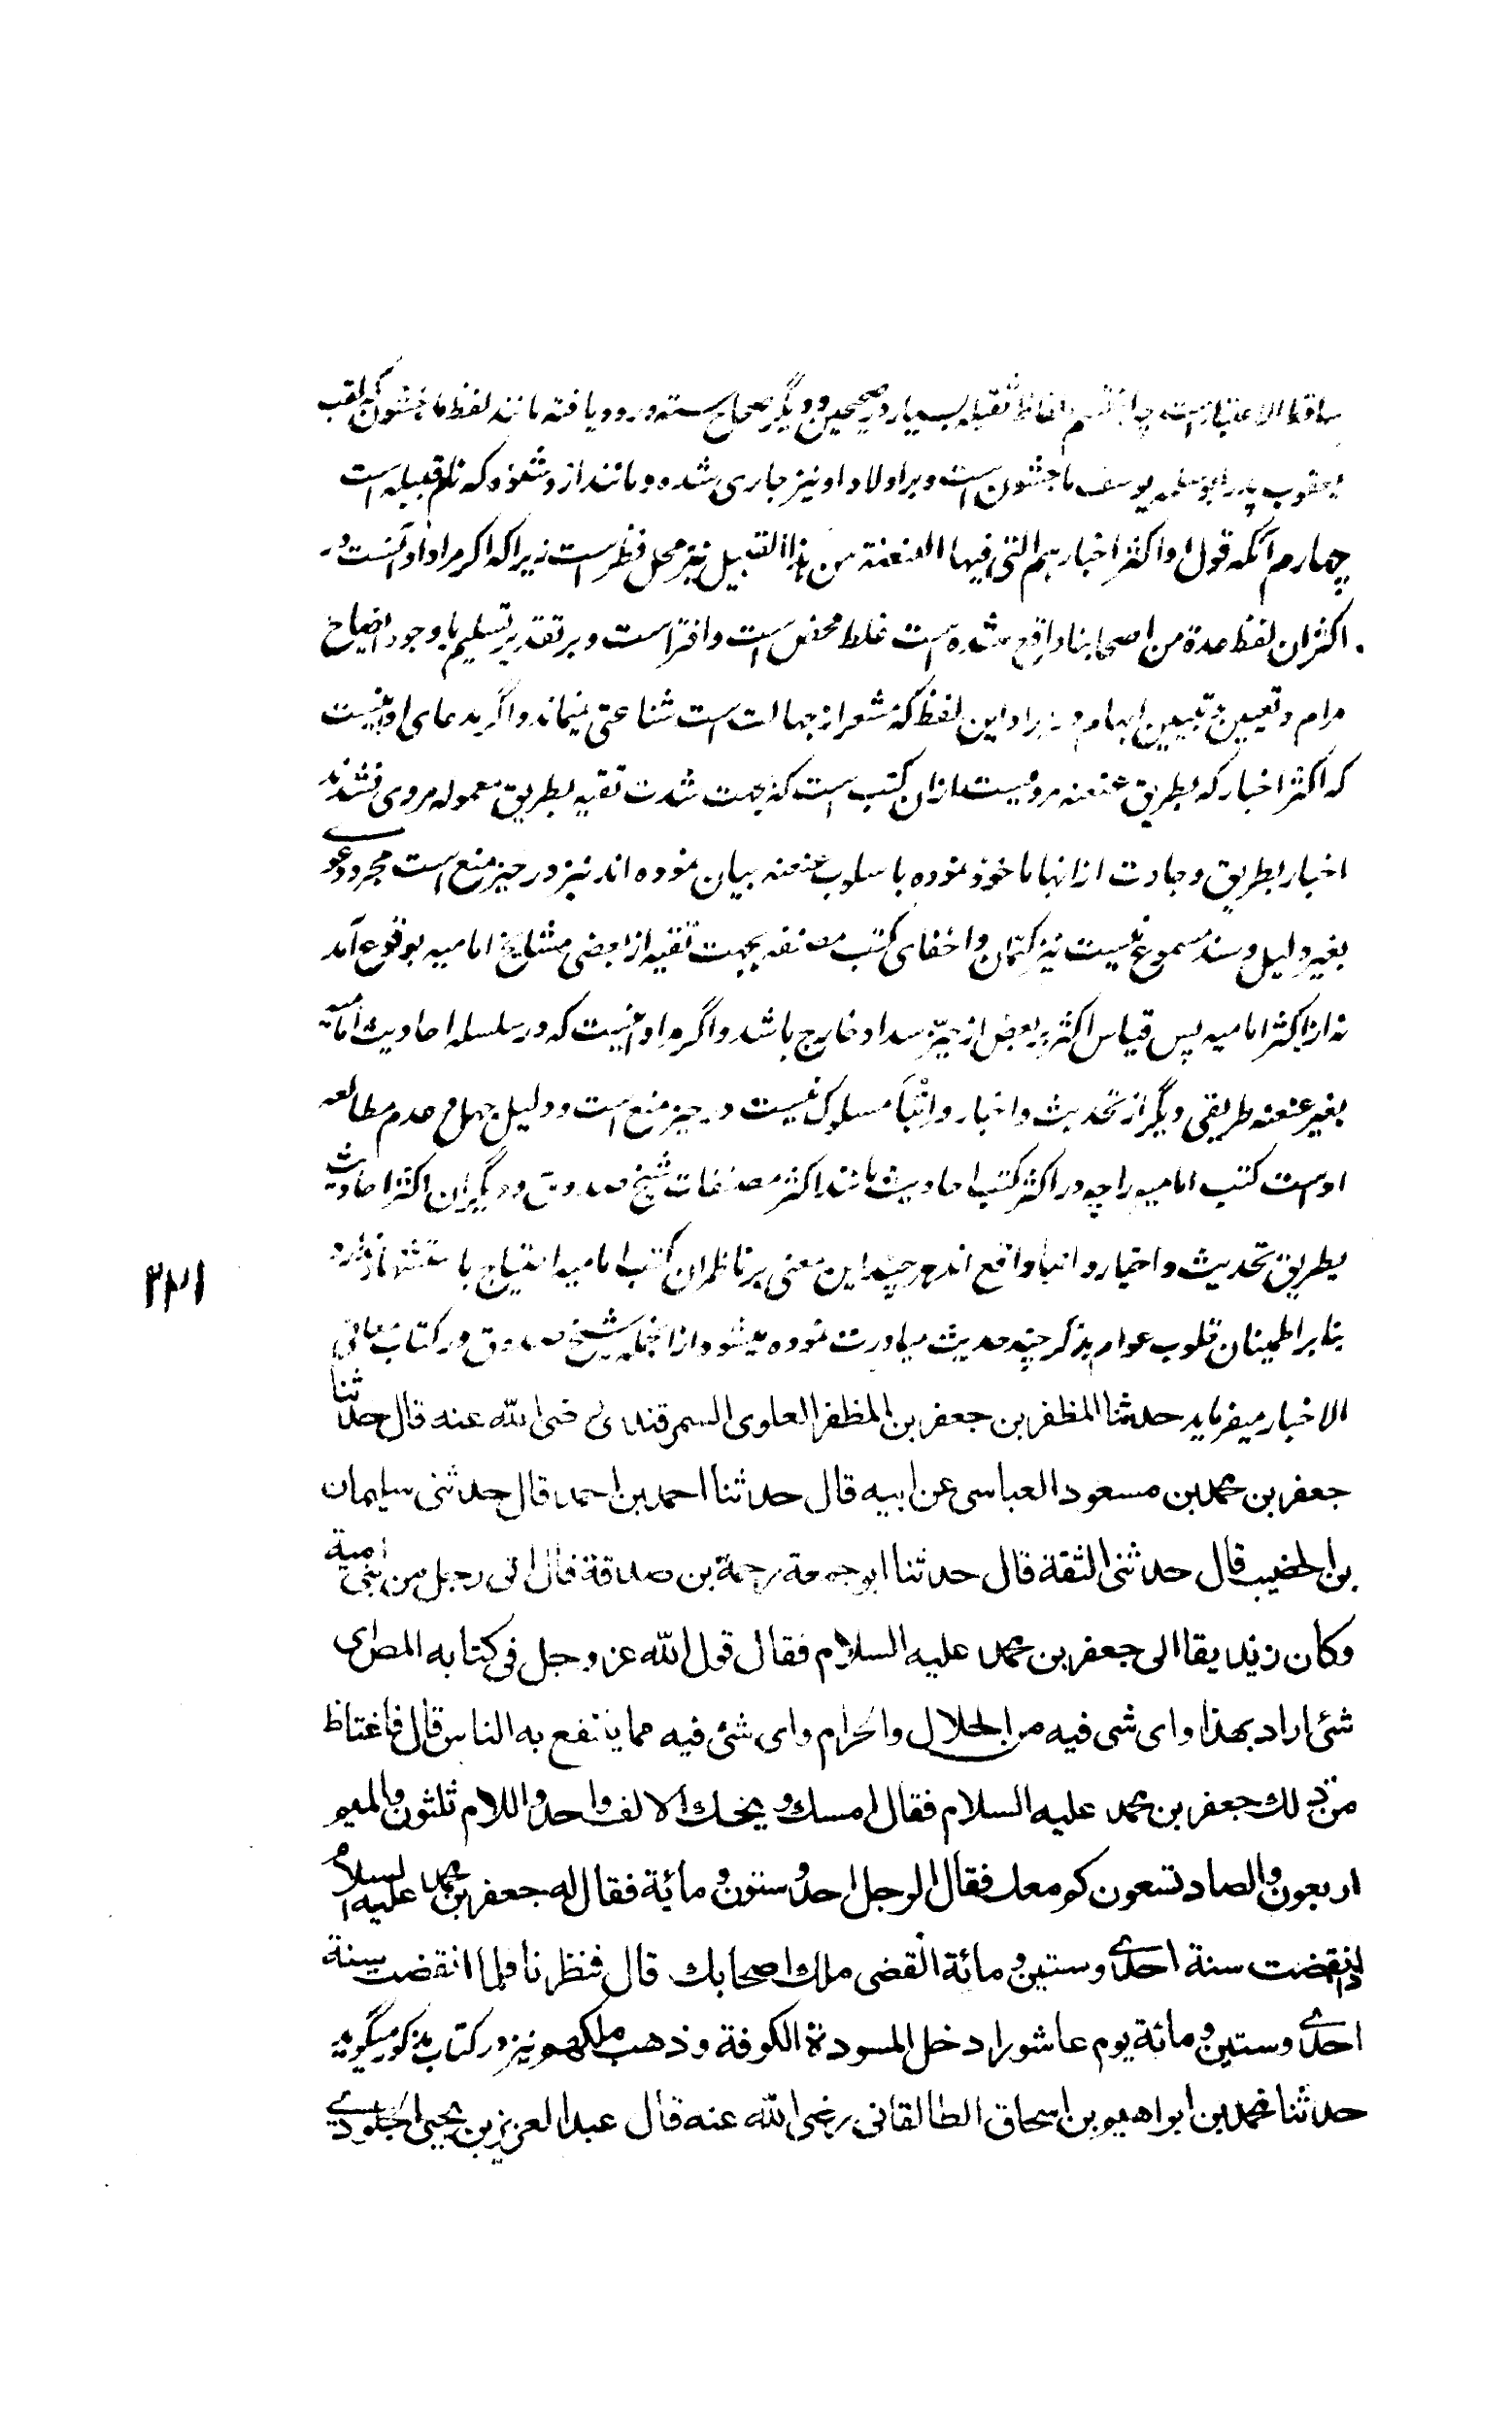 ساقط الاعتبار است چه از قسم الفاظ ثقیله بسیار در صحیحین و دیگر صحاح سته ورود یافته مانند لفظ ماجشون که لقب
یعقوب پدر ابو سلمه یوسف ماجشون است و بر اولاد او نیز جاری شده و مانند ازد شنوه که نام قبیله است
چهارم آنکه قول او اکثر اخبارهم التی فیها العنعنة من هذا القبیل نیز محل نظر است زیرا که اگر مراد او آنست در
اکثر ان لفظ عدة من اصحابنا واقع شده است غلط محض است و افتراست و بر تقدیر تسلیم با وجود ایضاح
مرام و تعیین و تبیین ابهام در ایراد این لفظ که مشعر از جهالت است شناعتی نمیماند و اگر مدعای او اینست
که اکثر اخبار که بطریق عنعنه مرویست از ان کتب است که بجهت شدت تقیه بطریق معموله مروی نشدند
اخبار بطریق وجادت از انها ماخوذ نموده باسلوب عنعنه بیان نموده اند نیز در حیز منع است مجرد دعوی
بغیر دلیل و سند مسموع نیست نیز کتمان و اخفای کتب مصنفه بجهت تقیه از بعضی مشایخ امامیه بوقوع آمد
نه از اکثر امامیه پس قیاس اکثر بر بعض از حیّز سداد خارج باشد و اگر مراد او اینست که در سلسله احادیث امامیه
بغیر عنعنه طریقی دیگر از تحدیث و اخبار و انباء مسلوک نیست در حیز منع است و دلیل جهل و عدم مطالعه
اوست کتب امامیه را چه در اکثر کتب احادیث مانند اکثر مصنفات شیخ صدوق و دیگران اکثر احادیث
بطریق تحدیث و اخبار و انبا واقع اند هر چند این معنی بر ناظران کتب امامیه احتیاج باستشهاد ندارد
بنابر اطمینان قلوب عوام بذکر چند حدیث مبادرت نموده میشود از انجمله شیخ صدوق در کتاب معانی
الاخبار میفرماید حدثنا المظفر بن جعفر بن المظفر العلوی السمرقندی رضی الله عنه قال حدثنا
جعفر بن محمد بن مسعود العباسی عن ابیه قال حدثنا احمد بن احمد قال حدثنی سلیمان
بن الخضیب قال حدثنی الثقة قال حدثنا ابو جمعة رحمة بن صدقة قال اتی رجل من بنی امیة
وکان زندیقا الی جعفر بن محمد علیه السلام فقال قول الله عز وجل فی کتابه المص ای
شئ اراد بهذا وای شی فیه من الحلال والحرام وای شئ فیه مما ینتفع به الناس قال فاغتاظ
من ذلك جعفر بن محمد علیه السلام فقال امسك ویحك الالف واحد واللام ثلثون والمیم
اربعون والصاد تسعون کم معك فقال الرجل احد وستون ومائة فقال له جعفر بن محمد علیه السلام
اذا انقضت سنة احدی وستین ومائة انقضی ملك اصحابك قال فنظرنا فلما انقضت سنة
احدی وستین ومائة یوم عاشورا دخل المسودة الکوفة وذهب ملکهم نیز در کتاب مذکور میگوید
حدثنا محمد بن ابراهیم بن اسحاق الطالقانی رضی الله عنه قال عبد العزیز بن یحیی الجلودی
۲۲۱